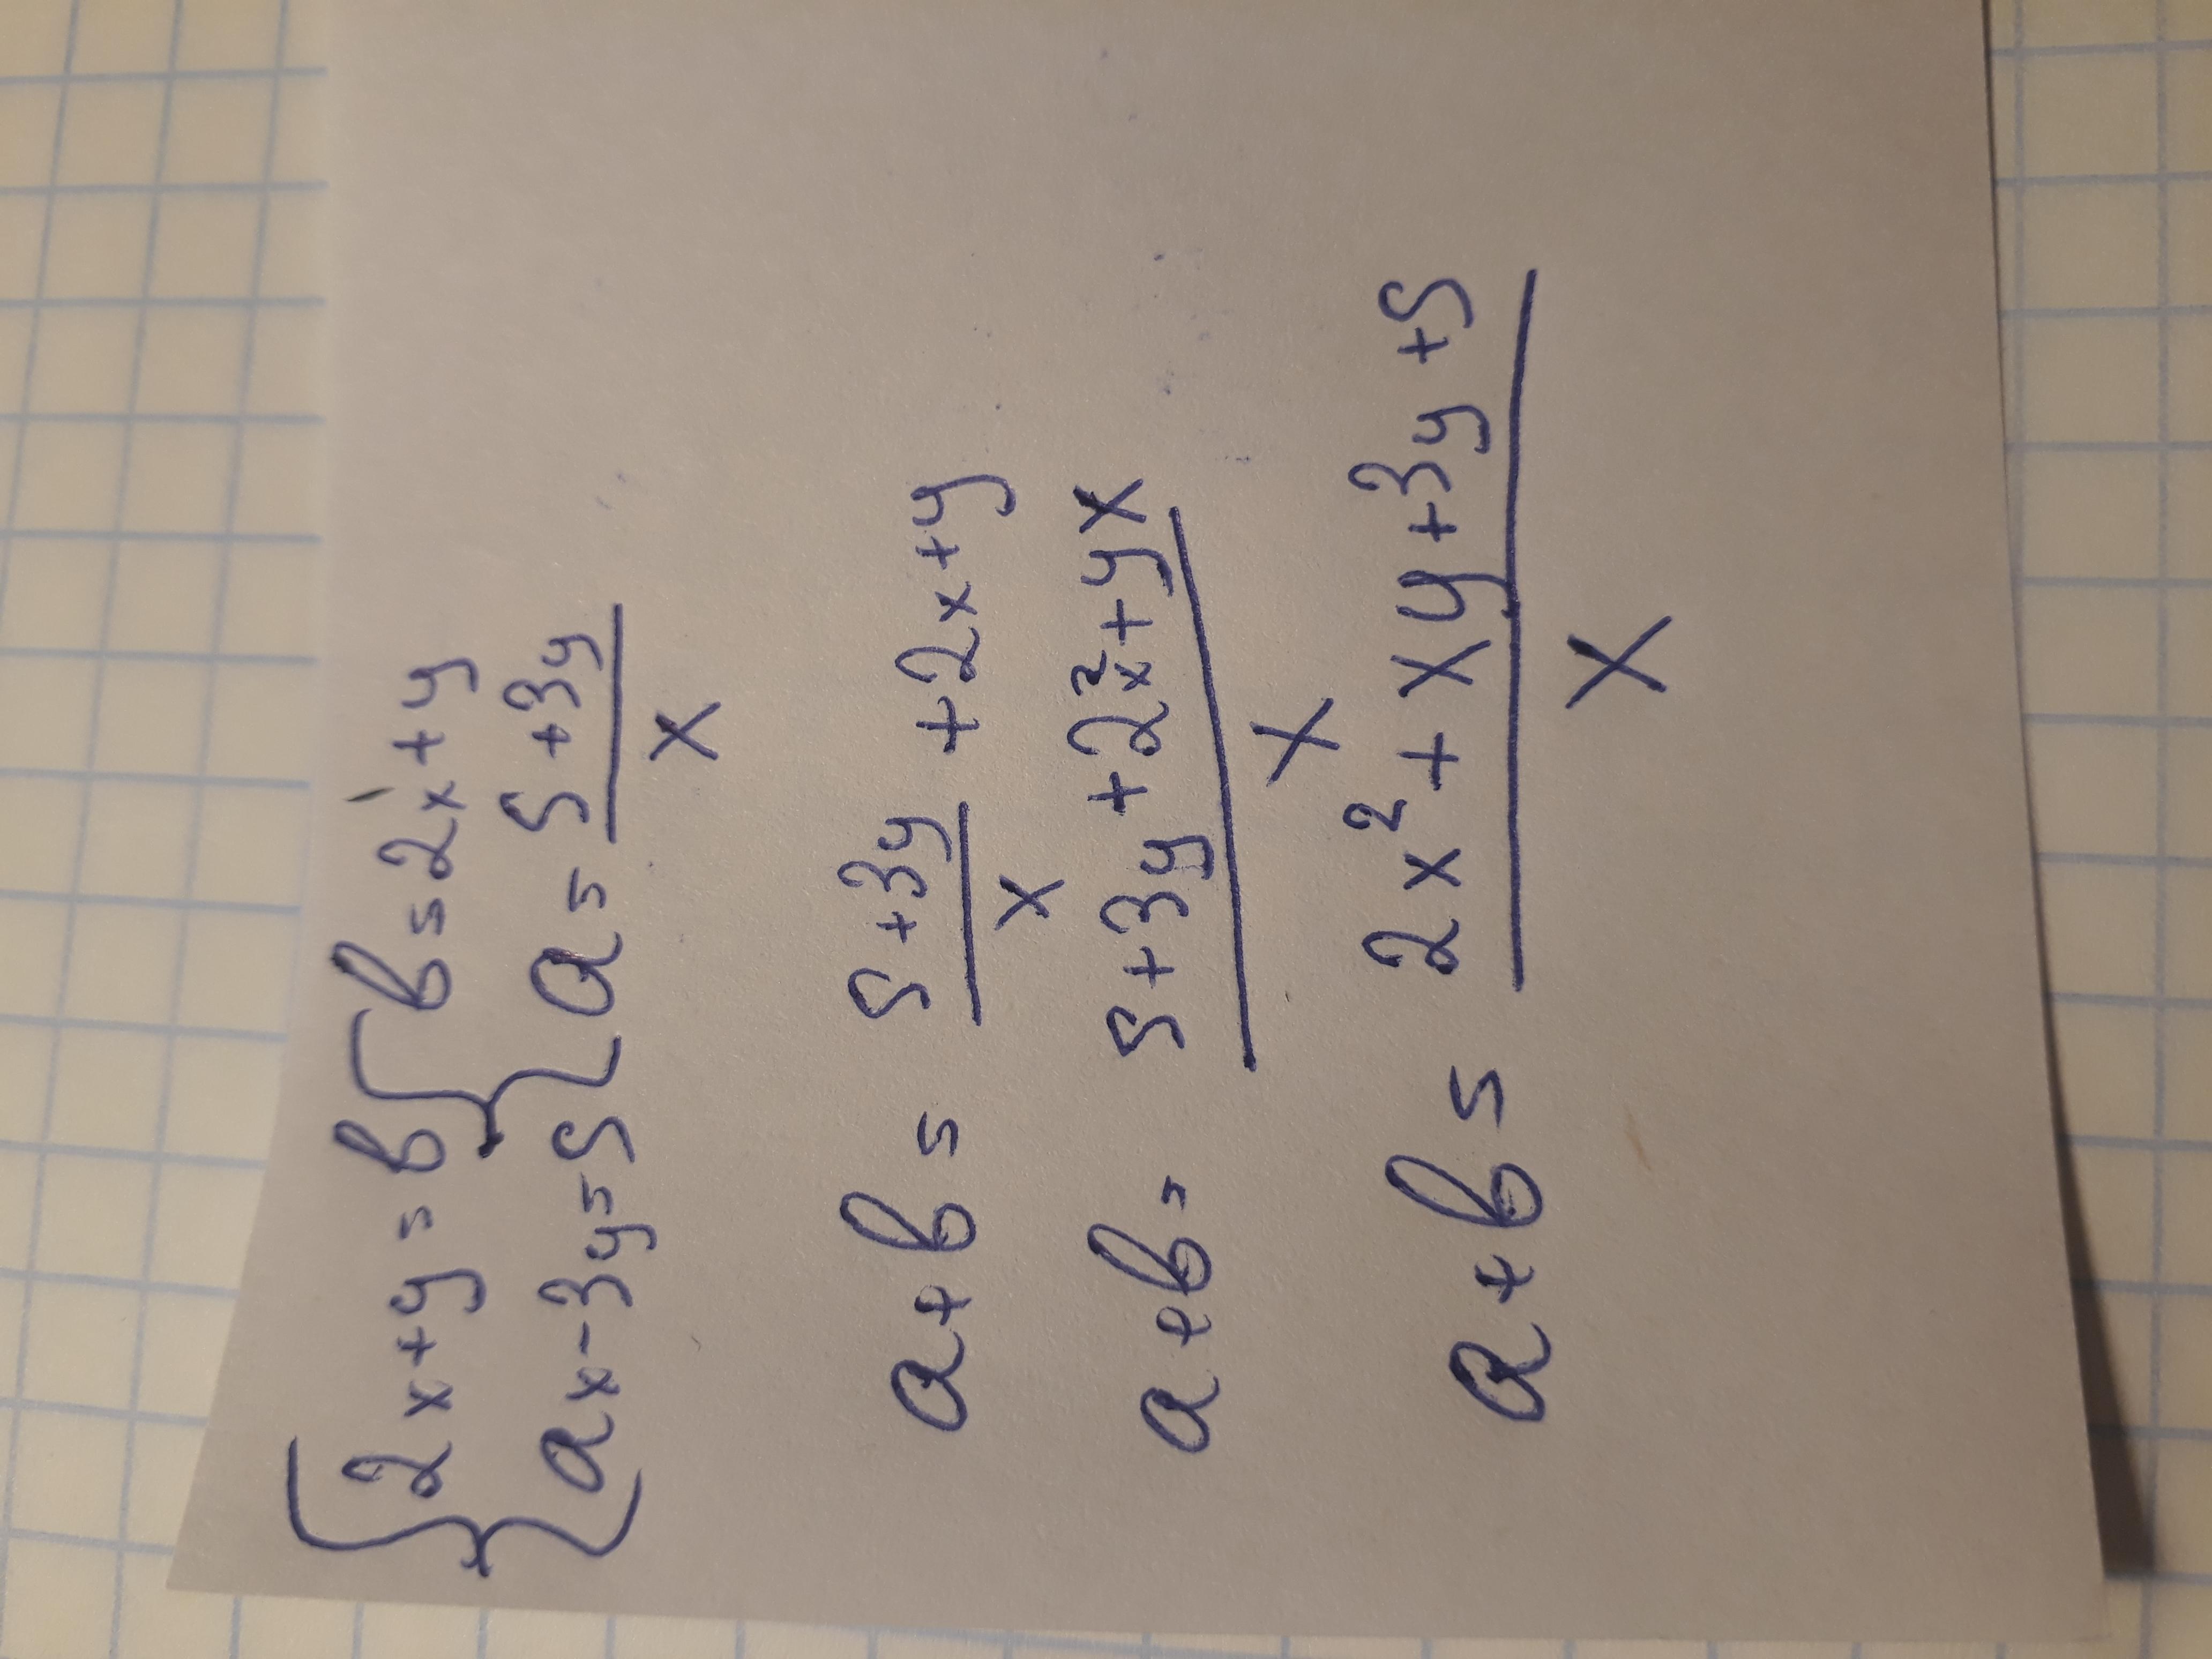 {2x+y=b { b=2x+y
{ax-3y=5 { a=(5+3y)/x
a+b = (5+3y)/x +2x+y
a+b = (5+3y+2x²+yx)/x
a+b = (2x²+xy+3y+5)/x